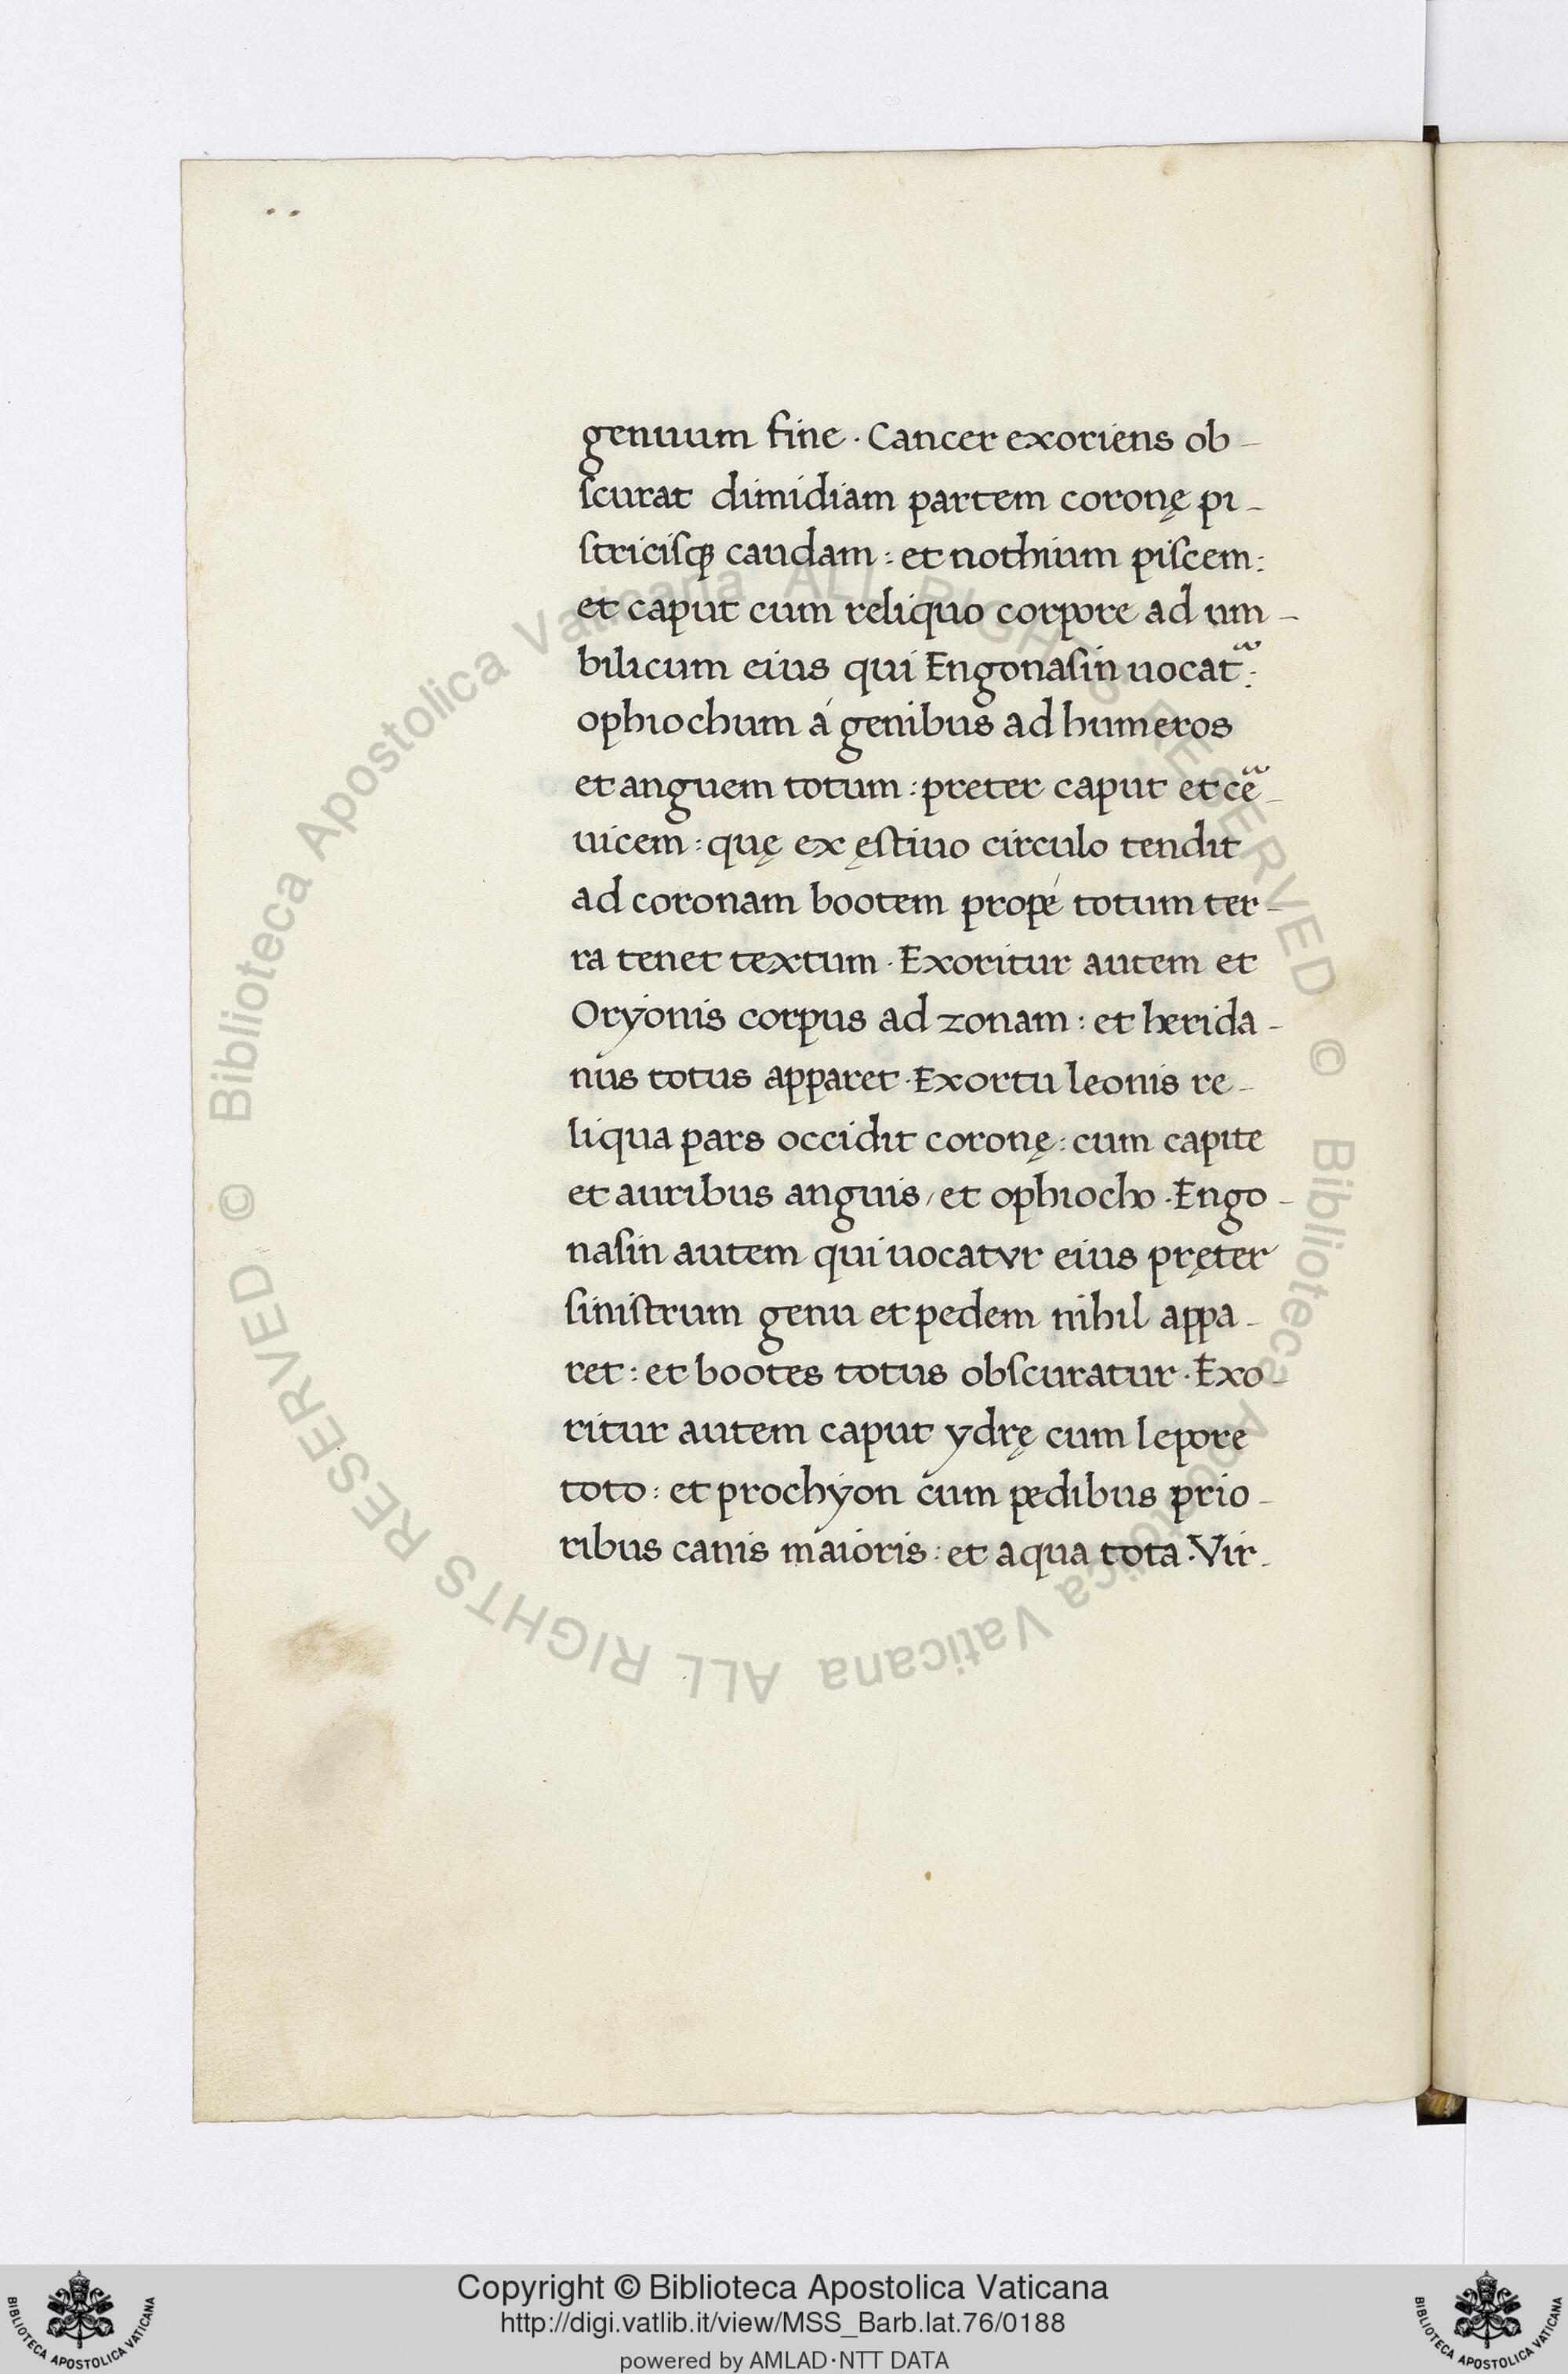 genuum fine · Cancer exoriens ob-
ſcurat dimidiam partem coronę pi-
ſtriciſqꝫ caudam : et nothium piſcem :
et caput cum reliquo corpore ad um-
bilicum eius qui Engonaſin uocat᷑ :
ophiochum á genibus ad humeros
et anguem totum : preter caput et ce᷑-
uicem : quę ex ęſtiuo circulo tendit
ad coronam bootem propé totum ter-
ra tenet textum · Exoritur autem et
Oryonis corpus ad zonam : et herida-
nus totus apparet · Exortu leonis re-
liqua pars occidit coronę : cum capite
et auribus anguis / et ophiocho · Engo-
naſin autem qui uocatvr eius pręter
ſiniſtrum genu et pedem nihil appa-
ret : et bootes totus obſcuratur · Exo-
ritur autem caput ydrę cum lepore
toto : et prochyon cum pedibus prio-
ribus canis maioris : et aqua tota · Vir-
© Biblioteca Apostolica Vaticana ALL RIGHTS RESERVED
© Biblioteca Apostolica Vaticana ALL RIGHTS RESERVED
BIBLIOTECA APOSTOLICA VATICANA
Copyright © Biblioteca Apostolica Vaticana
http://digi.vatlib.it/view/MSS_Barb.lat.76/0188
powered by AMLAD·NTT DATA
BIBLIOTECA APOSTOLICA VATICANA